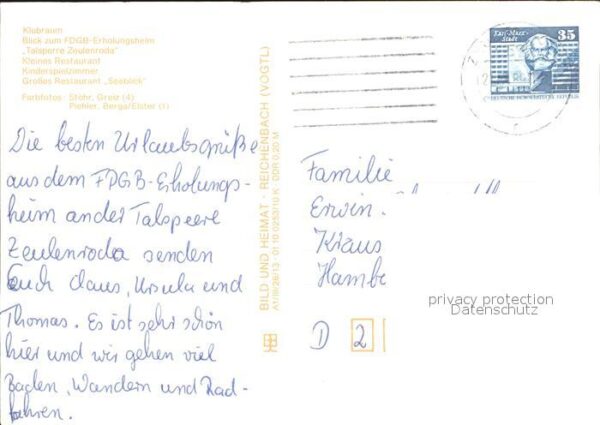 Klubraum
Blick zum FDGB-Erholungsheim
„Talsperre Zeulenroda“
Kleines Restaurant
Kinderspielzimmer
Großes Restaurant „Seeblick“
Farbfotos: Stöhr, Greiz (4)
Pichler, Berga/Elster (1)
Die besten Urlaubsgrüße
aus dem FDGB-Erholungs-
heim an der Talspeere
Zeulenroda senden
Euch Claus, Ursula und
Thomas. Es ist sehr schön
hier und wir gehen viel
Baden, Wandern und Rad-
fahren.
BILD UND HEIMAT · REICHENBACH (VOGTL)
A1/III/26/13 · 01 10 0253/10 K · DDR 0,20 M
Karl-Marx-
Stadt
35
DEUTSCHE DEMOKRATISCHE REPUBLIK
Familie
Erwin
Kraus
Hambe
D 2
privacy protection
Datenschutz